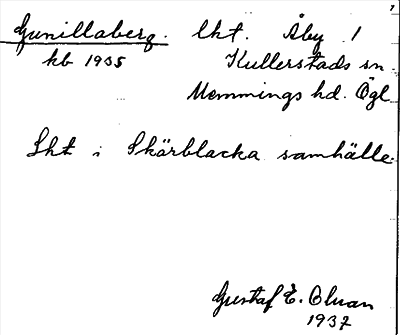 Gunillaberg. lht. Åby 1
kb 1935 Kullerstads sn.
Memmings hd. Ögl
Lht i Skärblacka samhälle.
Gustaf E. Olsson
1937